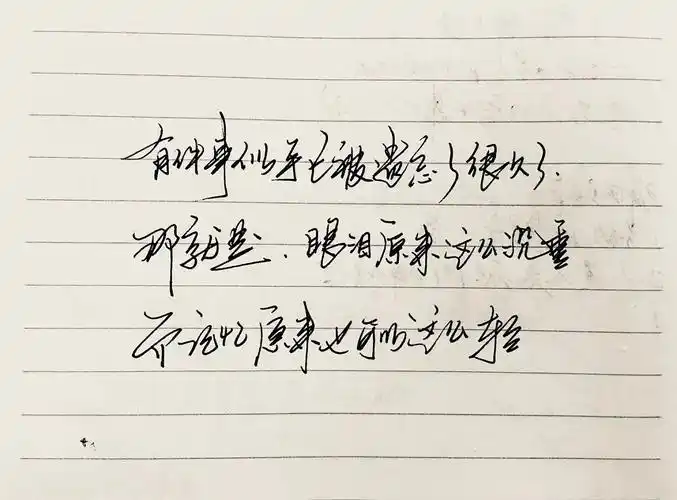 有件事似乎已被遗忘了很久了.
那就是.眼泪原来这么沉重
而记忆原来也可以这么轻